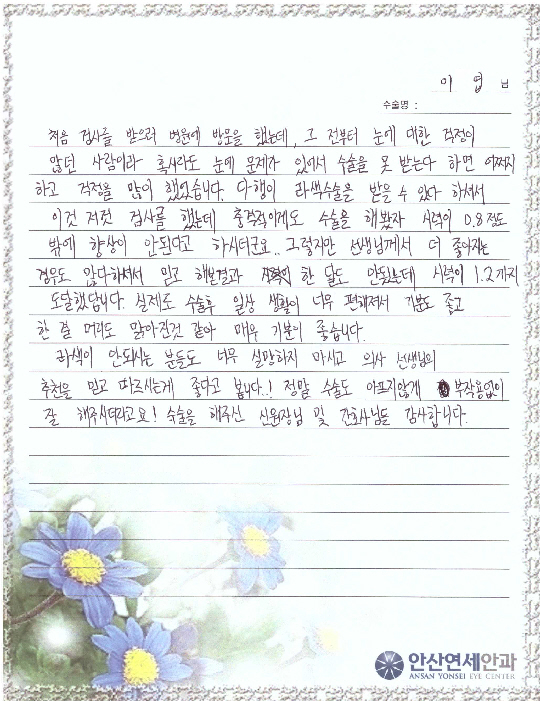 이 엽 님
수술명 :
처음 검사를 받으러 병원에 방문을 했는데, 그 전부터 눈에 대한 걱정이
많던 사람이라 혹시라도 눈에 문제가 있어서 수술을 못 받는다 하면 어쩌지
하고 걱정을 많이 했었습니다. 다행이 라색수술을 받을 수 있다 하셔서
이것 저것 검사를 했는데 충격적이게도 수술을 해봤자 시력이 0.8정도
밖에 향상이 안된다고 하시더군요.. 그렇지만 선생님께서 더 좋아지는
경우도 많다하셔서 믿고 해본결과 한 달도 안됬는데 시력이 1.2까지
도달했답니다. 실제로 수술후 일상 생활이 너무 편해져서 기분도 좋고
한 결 머리도 맑아진것 같아 매우 기분이 좋습니다.
라색이 안되시는 분들도 너무 실망하지 마시고 의사 선생님의
추천을 믿고 따르시는게 좋다고 봅니다.! 정말 수술도 아프지않게 부작용없이
잘 해주시더라고요! 수술을 해주신 원장님 및 간호사님들 감사합니다.
안산연세안과
ANSAN YONSEI EYE CENTER